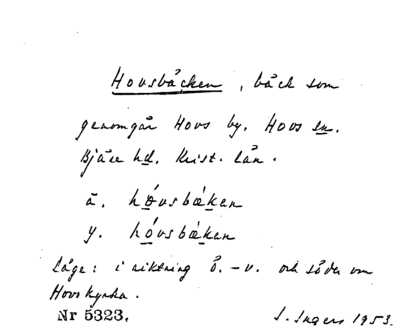 Hovsbäcken, bäck som
genomgår Hovs by. Hovs sn.
Bjäre hd, Krist. län.
ä. hǫvsbækan
y. hǫ́vsbækan
Läge: i riktning ö. - v. och söder om
Hovs kyrka.
Nr 5323. I. Ingers 1953.